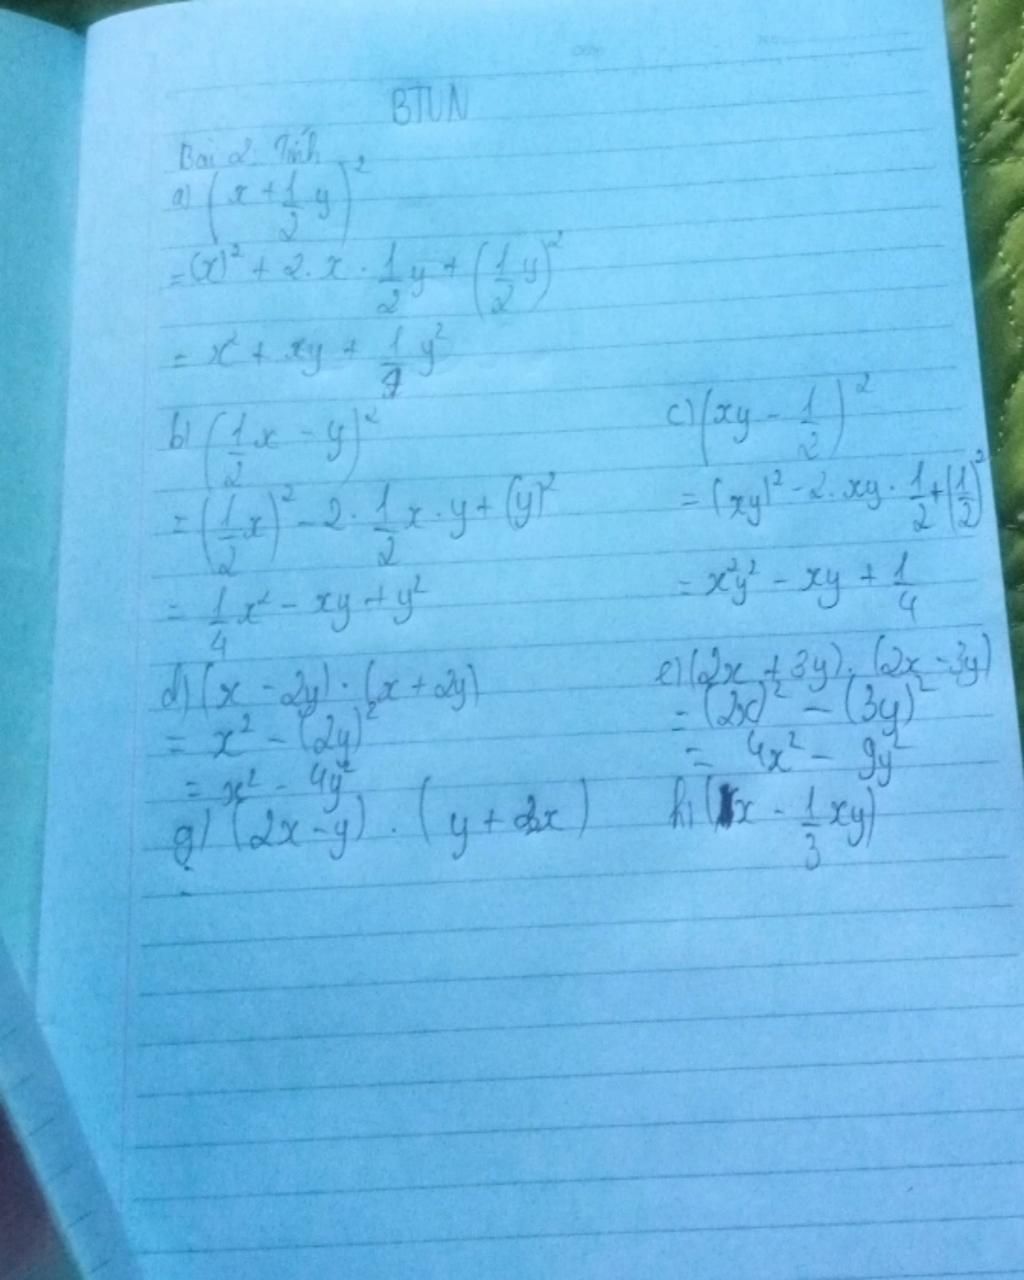 BTVN
Bài 2. Tính
a) (x + 1/2 y)²
= (x)² + 2. x . 1/2 y + (1/2 y)²
= x² + xy + 1/4 y²
b) (1/2 x - y)²
= (1/2 x)² - 2. 1/2 x . y + (y)²
= 1/4 x² - xy + y²
c) (xy - 1/2)²
= (xy)² - 2. xy . 1/2 + (1/2)²
= x²y² - xy + 1/4
d) (x - 2y) . (x + 2y)
= x² - (2y)²
= x² - 4y²
e) (2x + 3y) . (2x - 3y)
= (2x)² - (3y)²
= 4x² - 9y²
g) (2x - y) . (y + 2x)
h) (x - 1/3 xy)